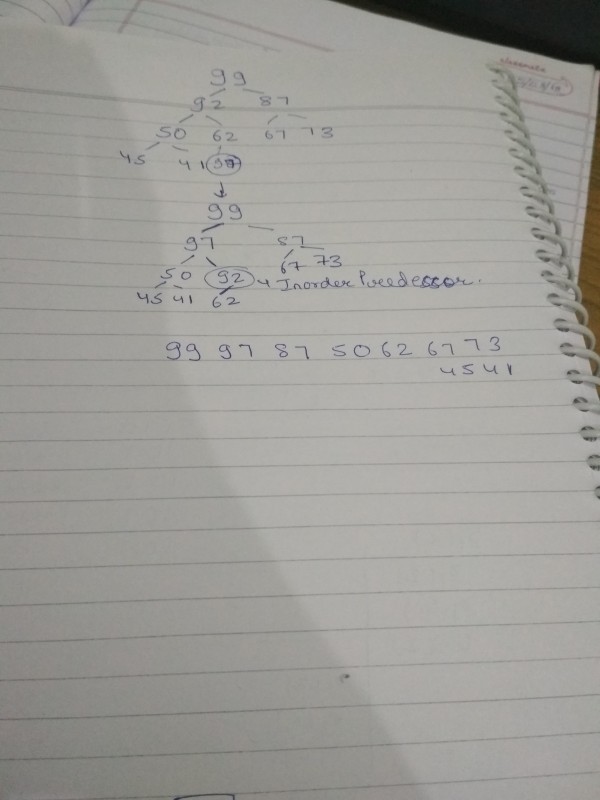 classmate
99
92 87
50 62 67 73
45 41 97
99
97 87
50 92 67 73
45 41 62 Inorder Predecessor.
99 97 87 50 62 67 73
45 41